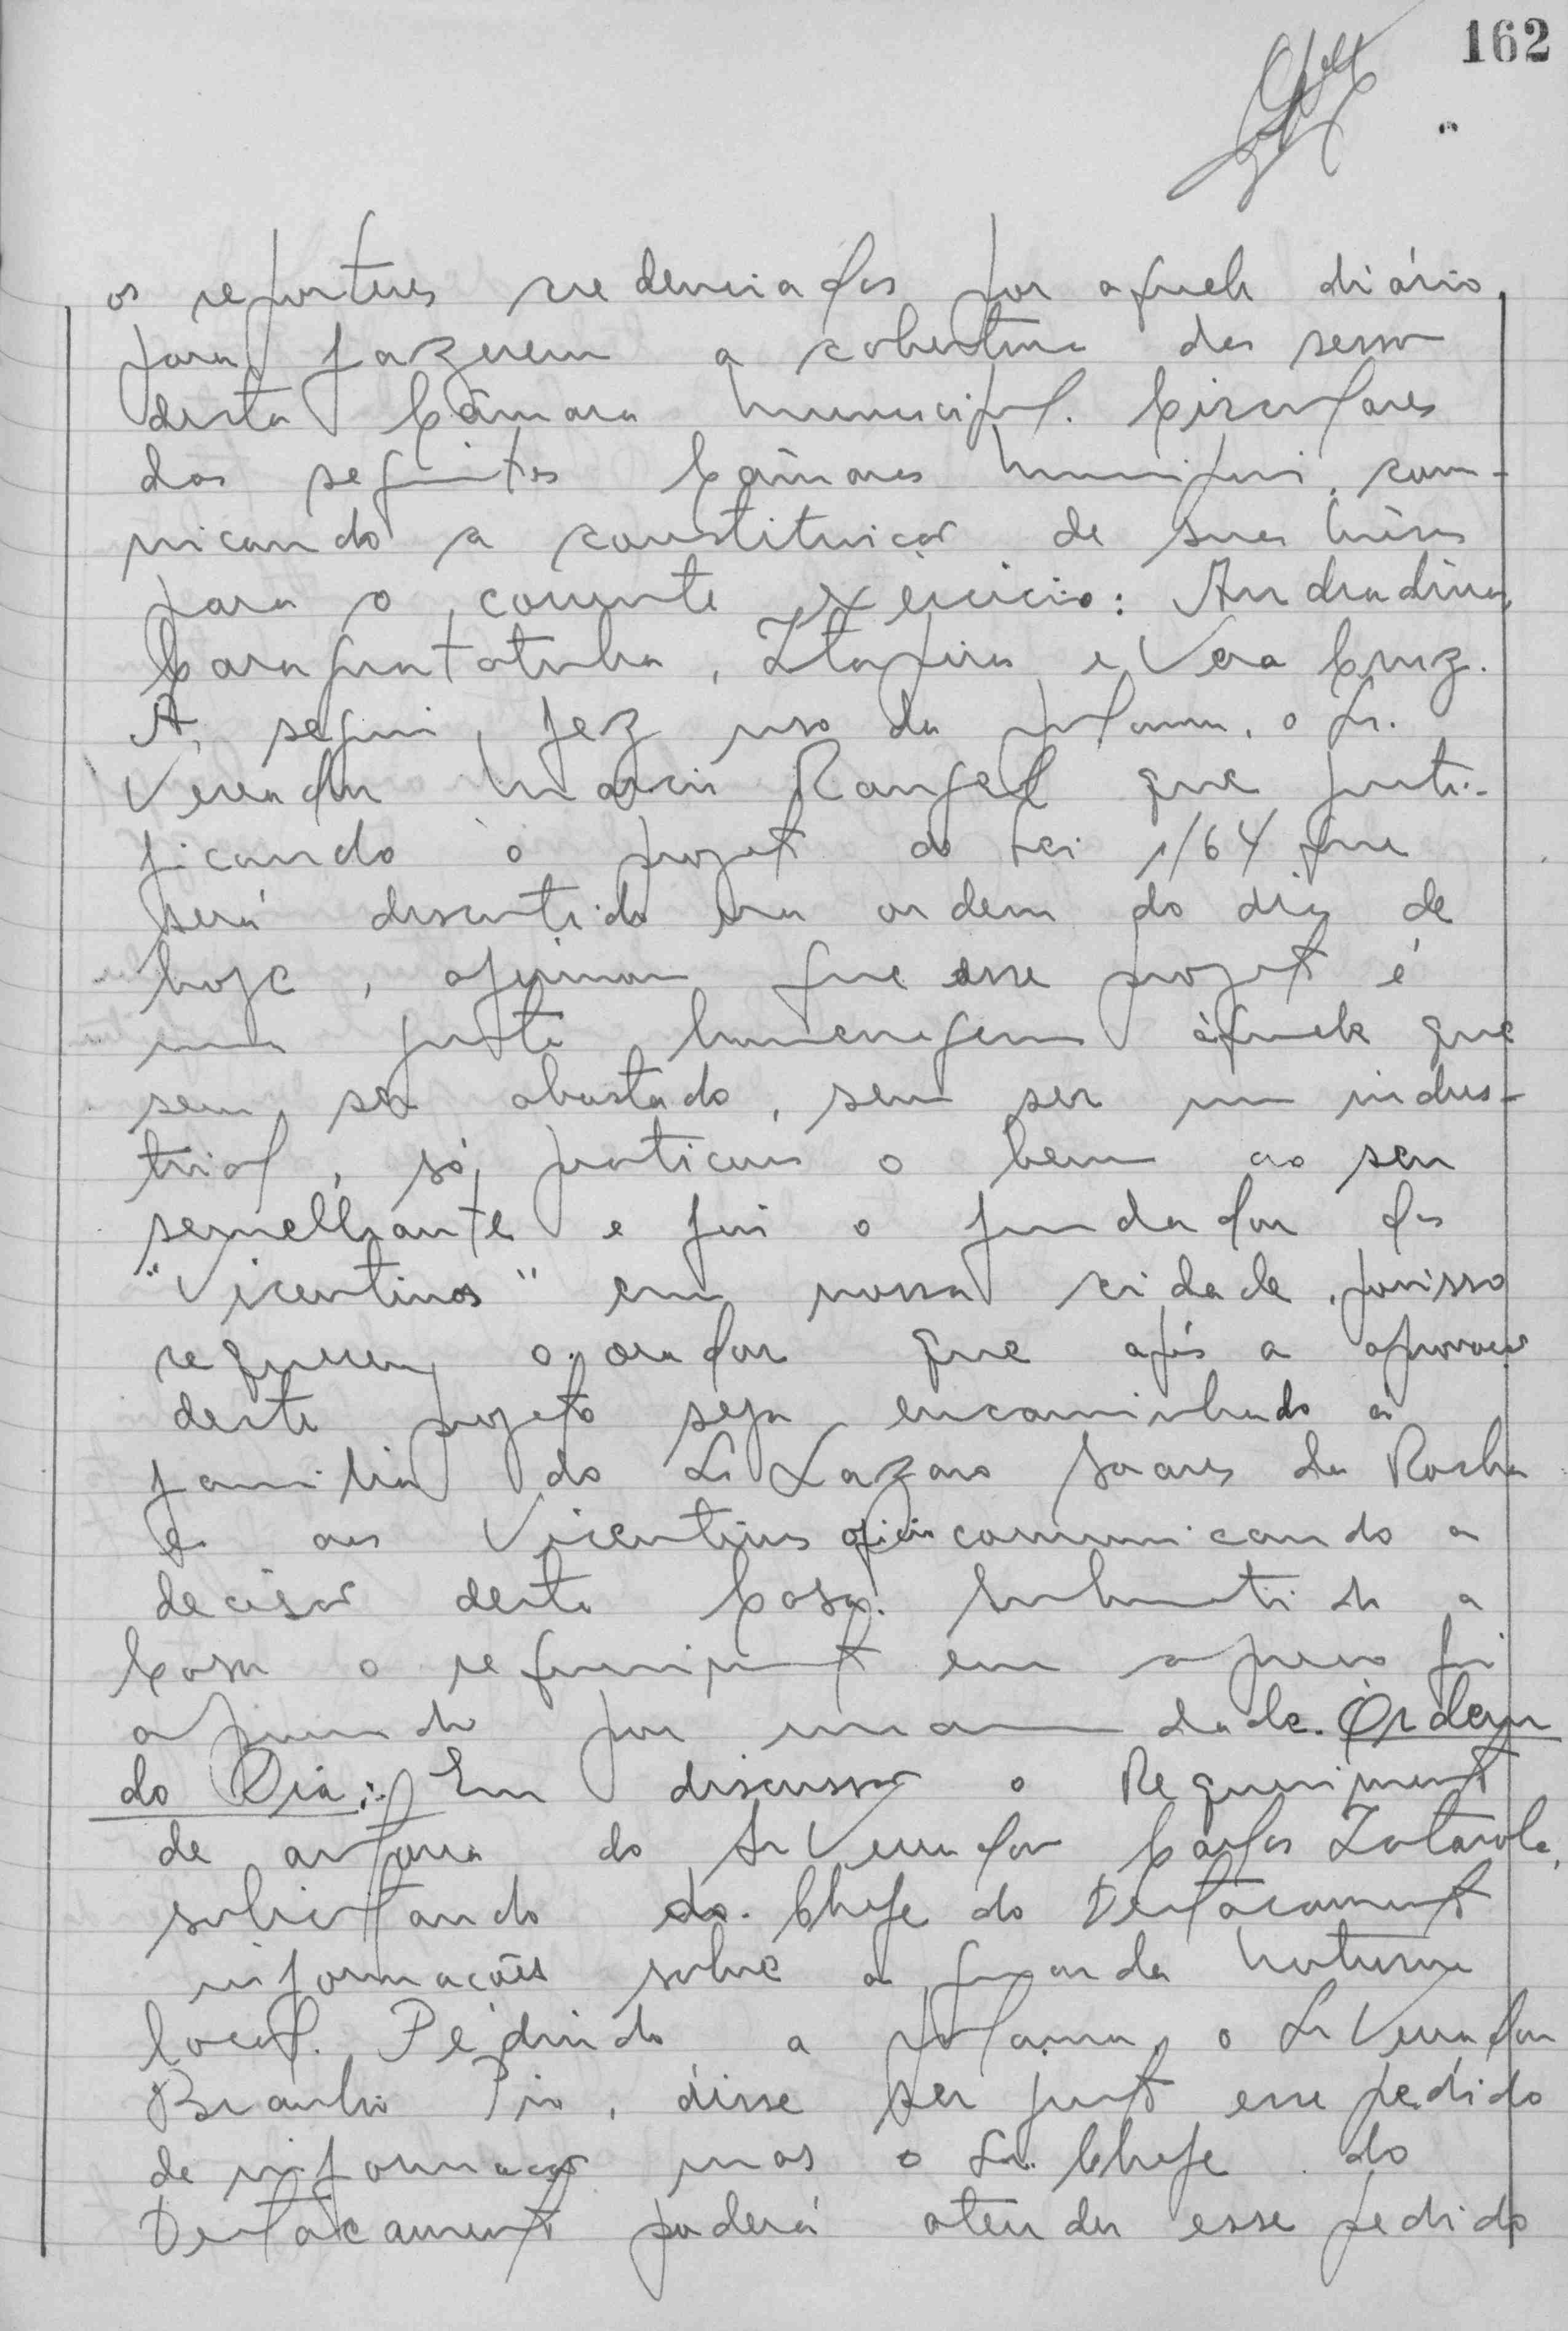 162
os reporteres credenciados por aquele diário,
para fazerem a cobertura das sessões
desta Câmara Municipal. Circulares
das seguintes Câmaras Municipais, comu-
nicando a constituição de suas Mesas
para o corrente exercicio: Andradina,
Caraguatatuba, Itapira e Vera Cruz.
A seguir, fez uso da palavra, o Sr.
Vereador Marcio Rangel que justi-
ficando o projeto de Lei 1/64 que
será discutido na ordem do dia de
hoje, afirmou que esse projeto é
uma justa homenagem àquele que
sem ser abastado, sem ser um indus-
trial, só praticou o bem ao seu
semelhante e foi o fundador dos
"Vicentinos" em nossa cidade, porisso
requereu o orador que após a aprovação
deste projeto seja encaminhado à
familia do Sr Lazaro Soares da Rocha
e aos Vicentinos oficios comunicando a
decisão desta Casa. Submetido a
Casa o requerimento em apreço foi
aprovado por unanimidade. Ordem
do Dia: Em discussão o Requerimento
de autoria do Sr Vereador Carlos
solicitando do Chefe do Destacamento
informações sobre a guarda Noturna
local. Pedindo a palavra, o Sr Vereador
Braulio Pio, disse ser justo esse pedido
de informação mas o Sr. Chefe do
Destacamento poderá atender esse pedido